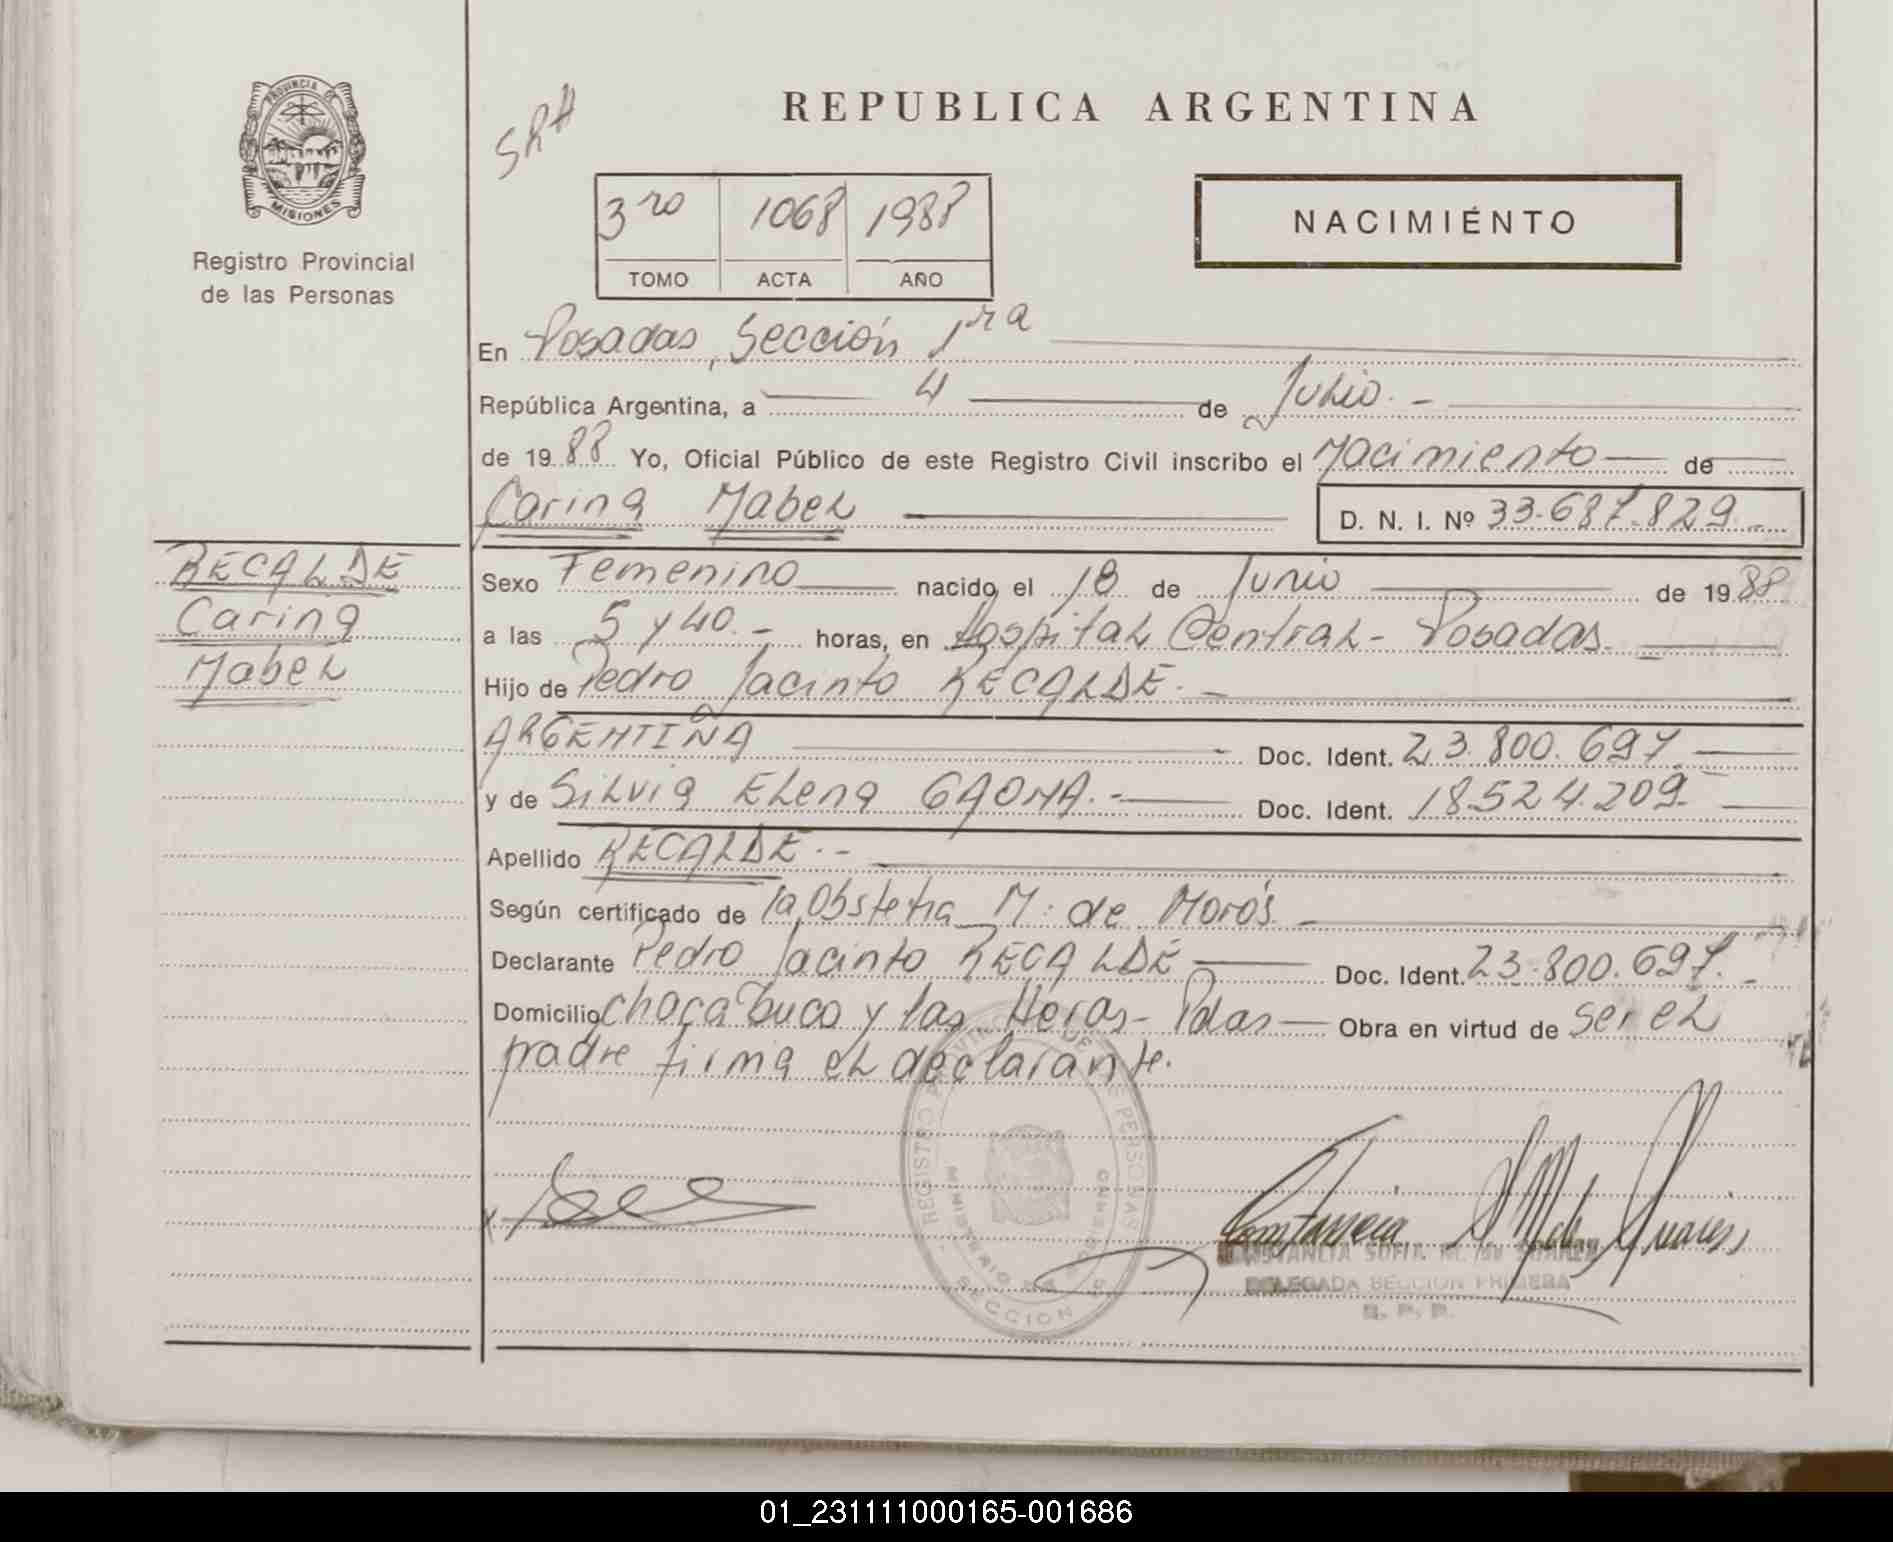 PROVINCIA DE
MISIONES
Registro Provincial
de las Personas
SRH
REPUBLICA ARGENTINA
3ro 1068 1988
TOMO ACTA AÑO
NACIMIENTO
En Posadas, Sección 1ra
República Argentina, a 4 de Julio.-
de 1988 Yo, Oficial Público de este Registro Civil inscribo el Nacimiento de
Carina Mabel D. N. I. Nº 33.687.829.-
RECALDE
Carina
Mabel
Sexo Femenino nacido el 18 de Junio de 1988
a las 5 y 40.- horas, en Hospital Central- Posadas.
Hijo de Pedro Jacinto RECALDE.-
ARGENTINA Doc. Ident. 23.800.697.
y de Silvia Elena GAONA.- Doc. Ident. 18.524.209.-
Apellido RECALDE.-
Según certificado de la Obstetra M. de Morós.-
Declarante Pedro Jacinto RECALDE Doc. Ident. 23.800.697.-
Domicilio Chacabuco y las Heras- Pdas- Obra en virtud de ser el
padre firma el declarante.
REGISTRO PROVINCIAL DE LAS PERSONAS
MINISTERIO DE GOBIERNO
SECCION
CONSTANCIA SOFIA M. DE SUAREZ
DELEGADA SECCION PRIMERA
R. P. P.
01_231111000165-001686